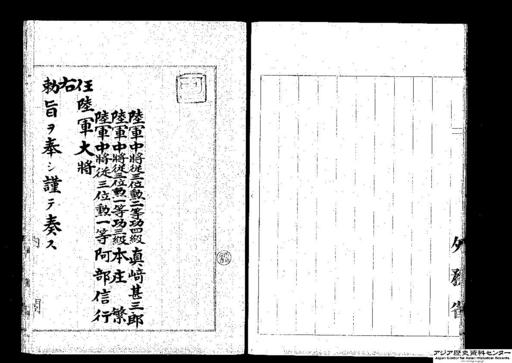 陸軍中将従三位勲二等功四級真崎甚三郎
陸軍中将従三位勲一等功三級本庄繁
陸軍中将従三位勲一等阿部信行
任陸軍大将
右
勅旨ヲ奉シ謹テ奏ス
内閣
外務省
アジア歴史資料センター
Japan Center for Asian Historical Records